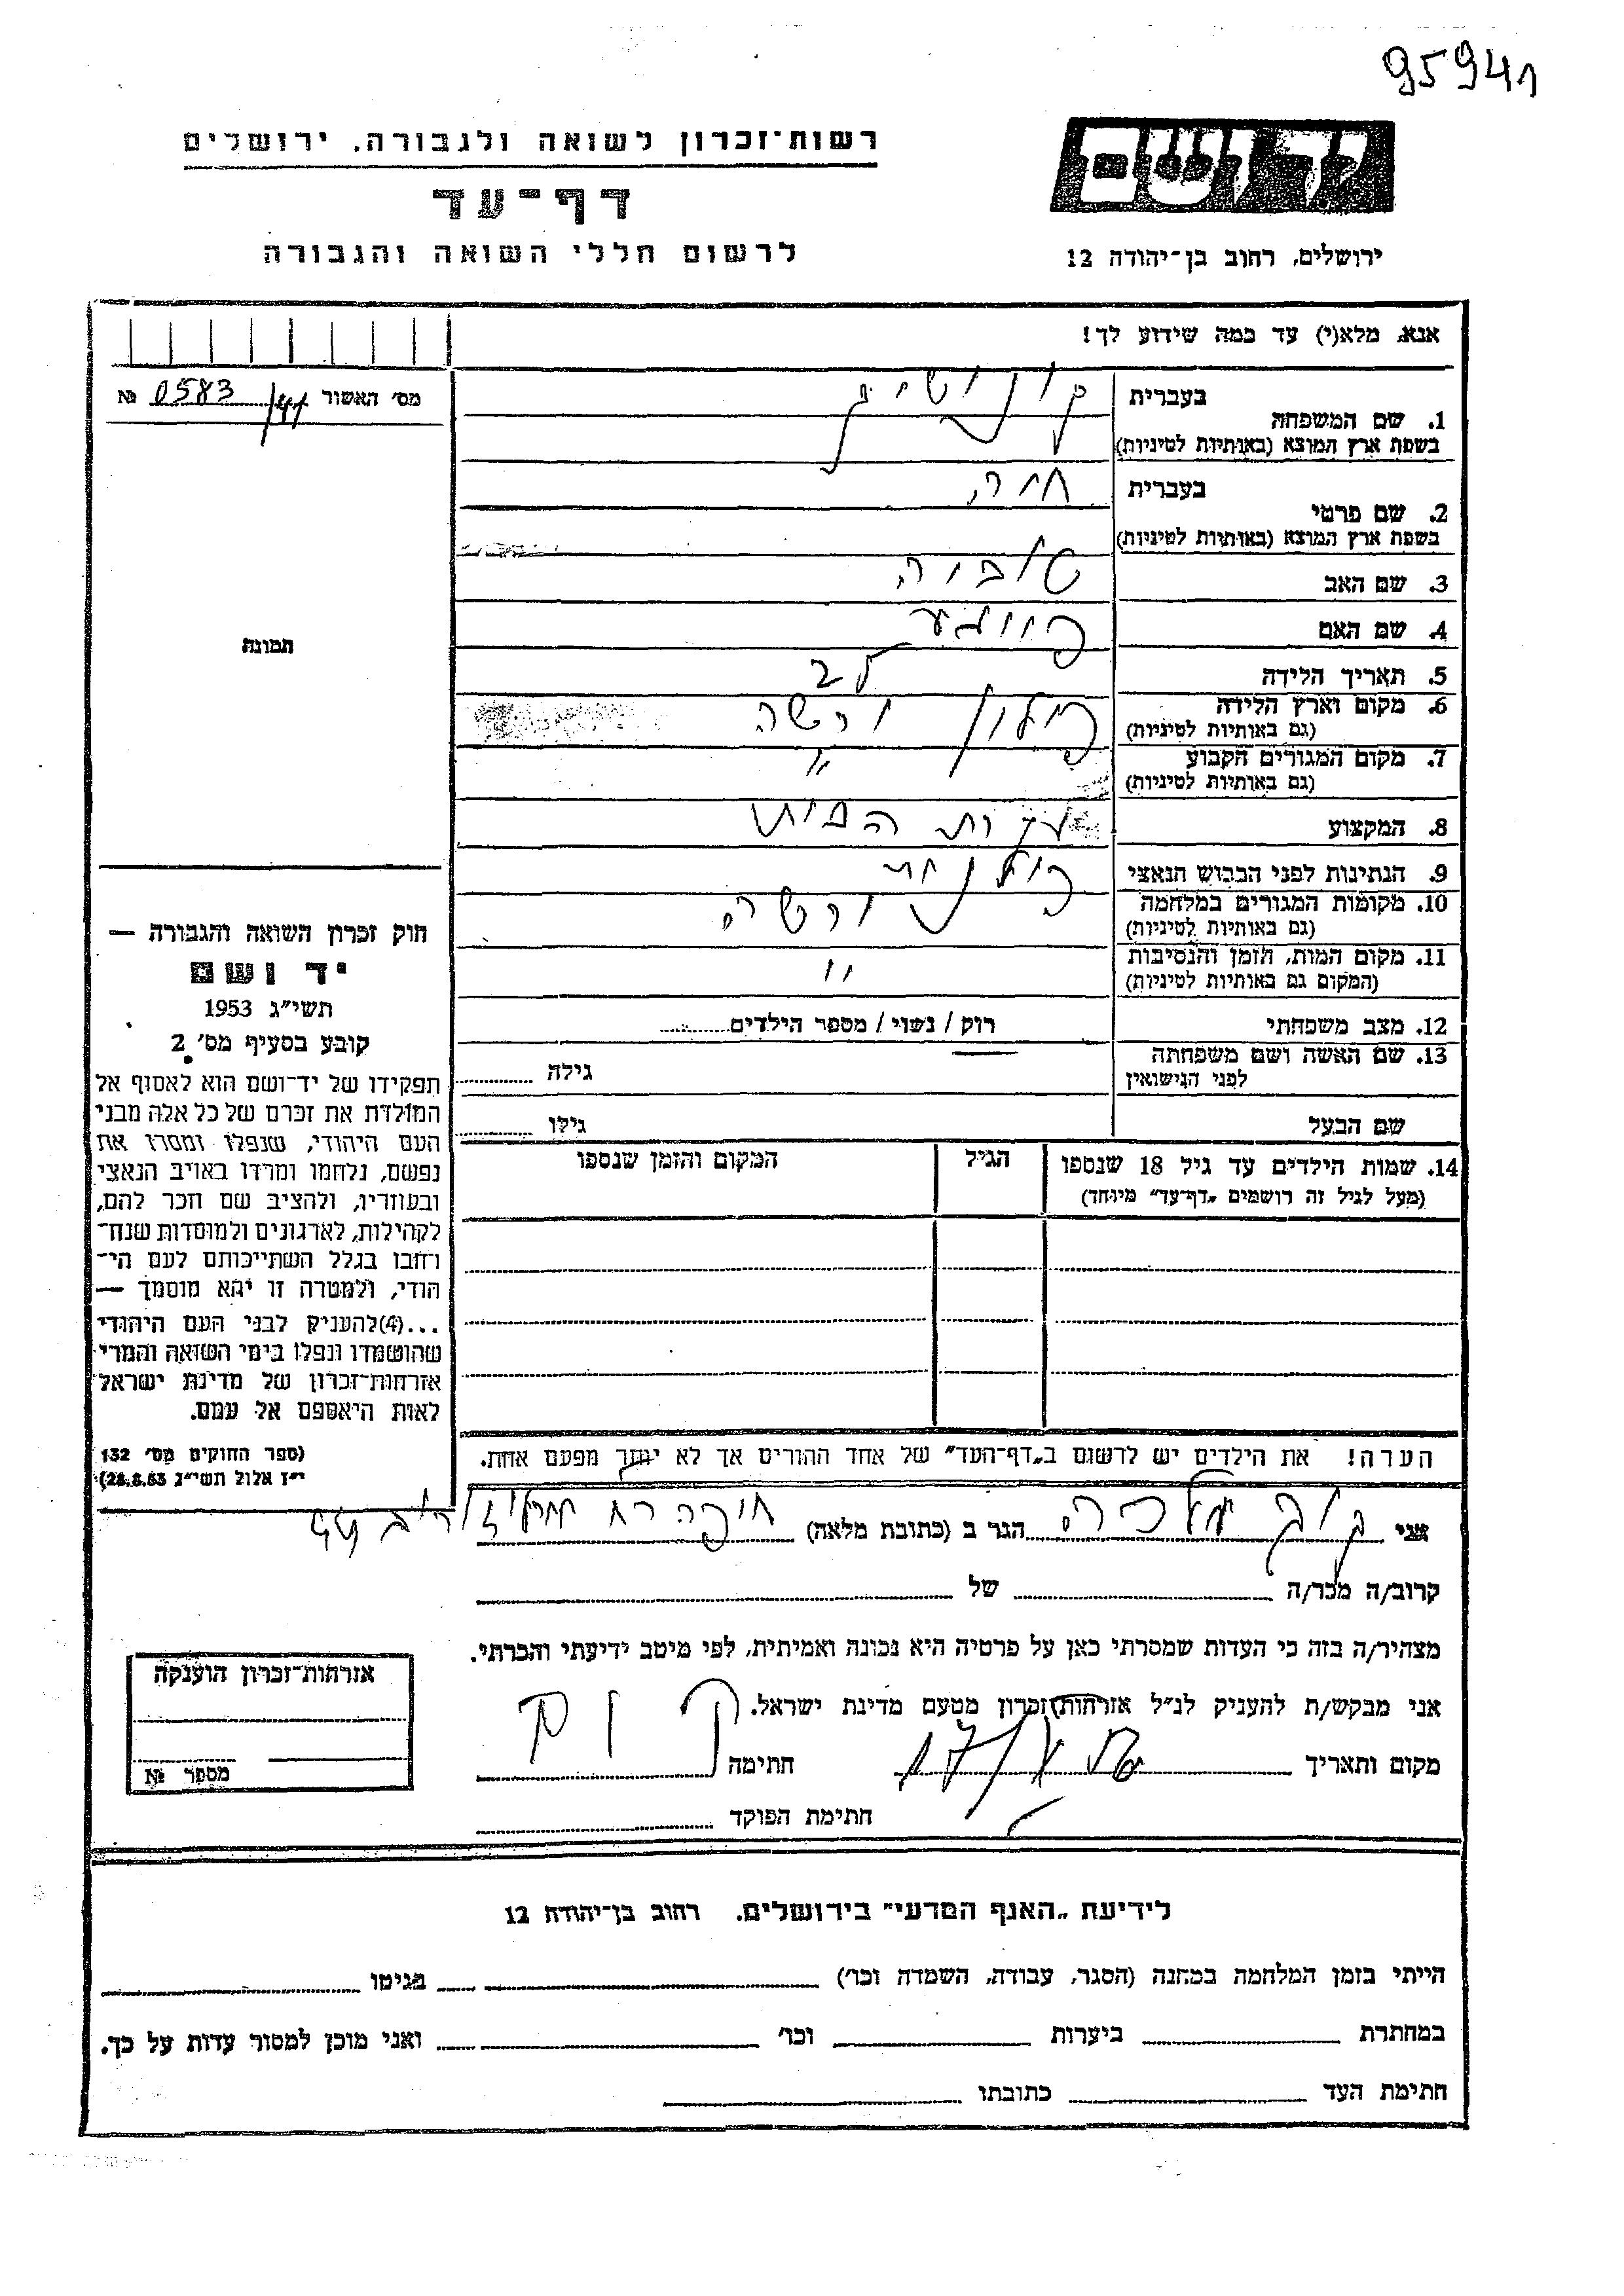 95941
רשות־זכרון לשואה ולגבורה, ירושלים
דף־עד
לרשום חללי השואה והגבורה
ידושם
ירושלים, רחוב בן־יהודה 12
אנא, מלא(י) עד כמה שידוע לך!
מס׳ האשור 0583/41 №
בעברית
1. שם המשפחה
בשפת ארץ המוצא (באותיות לטיניות)
בעברית חיה
2. שם פרטי
בשפת ארץ המוצא (באותיות לטיניות)
3. שם האב טוביה
4. שם האם
תמונה
5. תאריך הלידה
6. מקום וארץ הלידה פולין ורשה
(גם באותיות לטיניות)
7. מקום המגורים הקבוע "
(גם באותיות לטיניות)
8. המקצוע עקרת הבית
9. הנתינות לפני הכבוש הנאצי פולנית
10. מקומות המגורים במלחמה ורשה
(גם באותיות לטיניות)
11. מקום המות, הזמן והנסיבות "
(המקום גם באותיות לטיניות)
12. מצב משפחתי רוק / נשוי / מספר הילדים
13. שם האשה ושם משפחתה גילה
לפני הנישואין
שם הבעל גילו
14. שמות הילדים עד גיל 18 שנספו הגיל המקום והזמן שנספו
(מעל לגיל זה רושמים „דף־עד״ מיוחד)
חוק זכרון השואה והגבורה —
יד ושם
תשי״ג 1953
קובע בסעיף מס׳ 2
תפקידו של יד־ושם הוא לאסוף אל
המולדת את זכרם של כל אלה מבני
העם היהודי, שנפלו ומסרו את
נפשם, נלחמו ומרדו באויב הנאצי
ובעוזריו, ולהציב שם וזכר להם,
לקהילות, לארגונים ולמוסדות שנח־
רחבו בגלל השתייכותם לעם הי־
הודי, ולמטרה זו יהא מוסמך —
...(4)להעניק לבני העם היהודי
שהושמדו ונפלו בימי השואה והמרי
אזרחות־זכרון של מדינת ישראל
לאות היאספם אל עמם.
(ספר החוקים מס׳ 132
י״ז אלול תשי״ג 28.8.53)
הערה! את הילדים יש לרשום ב„דף־העד״ של אחד ההורים אך לא יותר מפעם אחת.
אני מלכה הגר ב (כתובת מלאה) חיפה רח
קרוב/ה מכר/ה של
מצהיר/ה בזה כי העדות שמסרתי כאן על פרטיה היא נכונה ואמיתית, לפי מיטב ידיעתי והכרתי.
אני מבקש/ת להעניק לנ״ל אזרחות־זכרון מטעם מדינת ישראל.
מקום ותאריך חתימה
חתימת הפוקד
אזרחות־זכרון הוענקה
מספר №
לידיעת „האגף המדעי״ בירושלים, רחוב בן־יהודה 12
הייתי בזמן המלחמה במחנה (הסגר, עבודה, השמדה וכו׳) בגיטו
במחתרת ביערות וכו׳ ואני מוכן למסור עדות על כך.
חתימת העד כתובתו